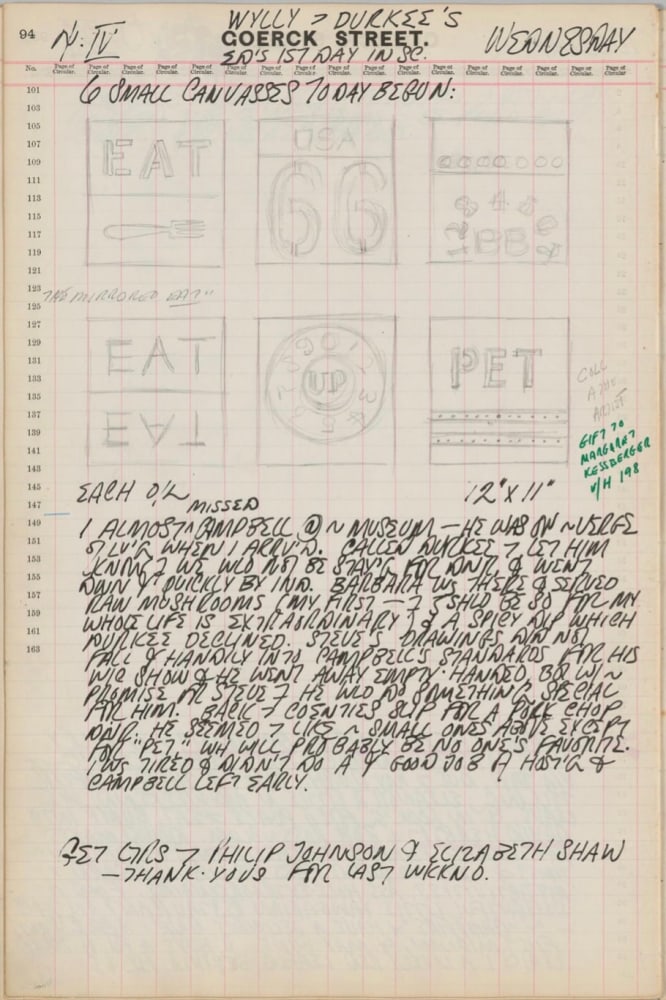 94
IV
WYLLY & DURKEE'S
GOERCK STREET.
ED'S 1ST DAY IN SC.
WEDNESDAY
No. Page of Circular. Page of Circular. Page of Circular. Page of Circular. Page of Circular. Page of Circular. Page of Circular. Page of Circular. Page of Circular. Page of Circular. Page of Circular. Page of Circular. Page of Circular. Page of Circular. Page of Circular
6 SMALL CANVASSES TODAY BEGUN:
101
103
105
107
109
111
113
115
117
119
121
123
125
127
129
131
133
135
137
139
141
143
145
147
149
151
153
155
157
159
161
163
EAT
USA
66
BB
"THE MIRRORED EAT"
EAT
EAT
UP
PET
CALL
GIFT TO
MARGARET
W/H 198
EACH O/L
12" X 11"
MISSED
I ALMOST ^ CAMPBELL @ ~ MUSEUM — HE WAS ON ~ VERGE
LV'G WHEN I ARRV'D. CALLED DURKEE LET HIM
KNOW WE WLD NOT BE STAY'G FOR DNR & WENT
DWN QUICKLY BY IND. BARBARA WS THERE & SERVED
RAW MUSHROOMS (MY FIRST — SHLD BE SO FOR MY
WHOLE LIFE IS EXTRAORDINARY) & A SPICY DIP WHICH
DURKEE DECLINED. STEVE'S DRAWINGS DID NOT
FALL HANDILY INTO CAMPBELL'S STANDARDS FOR HIS
SHOW & HE WENT AWAY EMPTY-HANDED, BUT W/ ~
PROMISE STEVE HE WLD DO SOMETHING SPECIAL
FOR HIM. BACK COENTIES SLIP FOR A PORK CHOP
DNR. HE SEEMED LIKE ~ SMALL ONES ABOVE EXCEPT
FOR "PET," WH WILL PROBABLY BE NO ONE'S FAVORITE.
I WS TIRED & DIDN'T DO A GOOD JOB HOST'G &
CAMPBELL LEFT EARLY.
GET LTRS PHILIP JOHNSON & ELIZABETH SHAW
— THANK-YOUS FOR LAST WKKND.